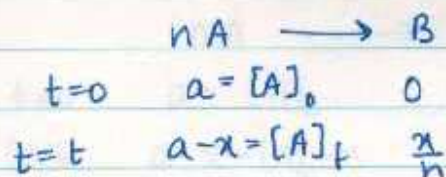 n A ⟶ B
t=0 a = [A]₀ 0
t=t a-x = [A]ₜ x/n